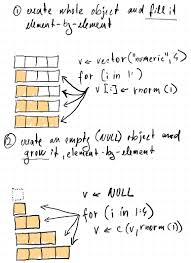 ① create whole object and fill it
element-by-element
v ← vector("numeric", 5)
for (i in 1:
v[i] ← rnorm(1)
② create an empty (NULL) object and
grow it, element-by-element
v ← NULL
for (i in 1:5)
v ← c(v, rnorm(1))